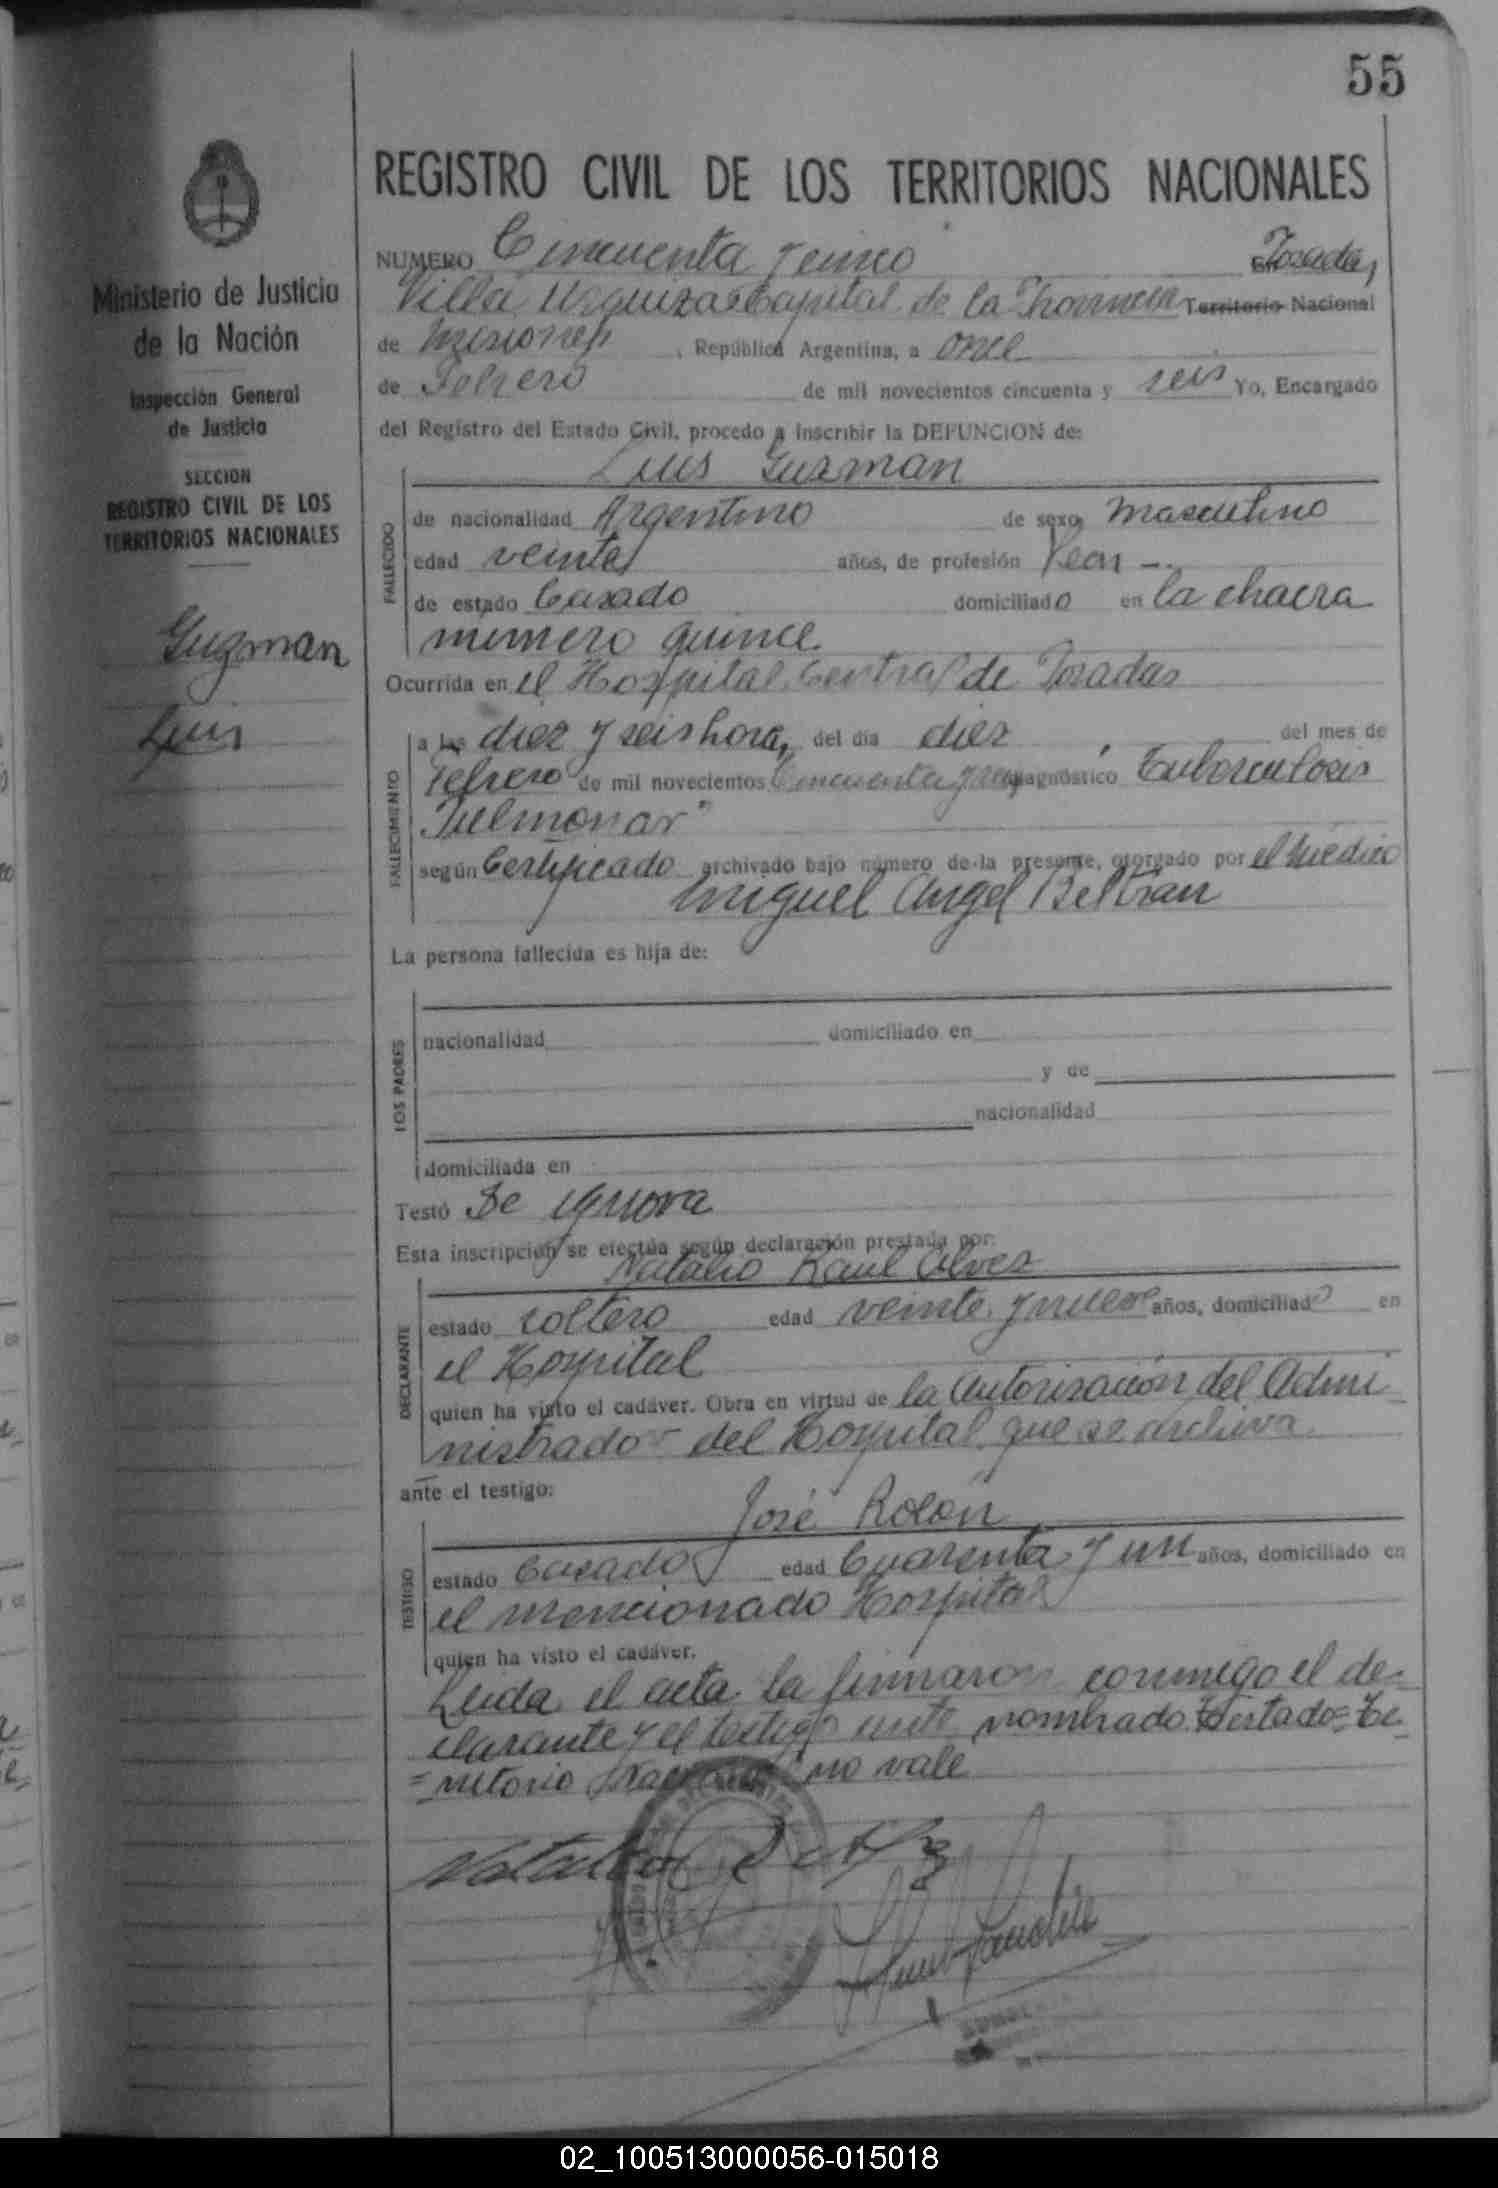 55
REGISTRO CIVIL DE LOS TERRITORIOS NACIONALES
Ministerio de Justicia
de la Nación
Inspección General
de Justicia
SECCION
REGISTRO CIVIL DE LOS
TERRITORIOS NACIONALES
Guzman
Luis
NUMERO Cincuenta y cinco En Posadas,
Villa Urquiza Capital de la Provincia Territorio Nacional
de Misiones, República Argentina, a once
de Febrero de mil novecientos cincuenta y seis Yo, Encargado
del Registro del Estado Civil, procedo a inscribir la DEFUNCION de:
Luis Guzman
FALLECIDO
de nacionalidad Argentino de sexo Masculino
edad veinte años, de profesión Peon -.
de estado Casado domiciliado en la chacra
número quince
Ocurrida en el Hospital Central de Posadas
FALLECIMIENTO
a las diez y seis horas, del día diez, del mes de
Febrero de mil novecientos Cincuenta y seis diagnóstico Tuberculosis
Pulmonar"
según Certificado archivado bajo número de la presente, otorgado por el Médico
Miguel Angel Beltran
La persona fallecida es hija de:
LOS PADRES
nacionalidad domiciliado en
y de
nacionalidad
domiciliada en
Testó Se ignora
Esta inscripción se efectúa según declaración prestada por:
Natalio Raul Alvez
DECLARANTE
estado soltero edad veinte y nueve años, domiciliado en
el Hospital
quien ha visto el cadáver. Obra en virtud de la Autorización del Admi
nistrador del Hospital que se archiva.
ante el testigo:
José Rolón
TESTIGO
estado Casado edad Cuarenta y un años, domiciliado en
el mencionado Hospital
quien ha visto el cadáver.
Leida el acta la firmaron conmigo el de-
clarante y el testigo ante nombrado Testado= Te
=rritorio Nacional no vale
02_100513000056-015018